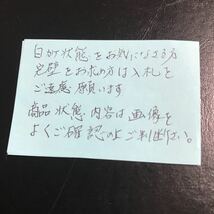 状態をお気になさる方
完璧をお求め方は入札を
ご遠慮願います
商品状態.内容は画像を
よくご確認の上ご判断下さい。